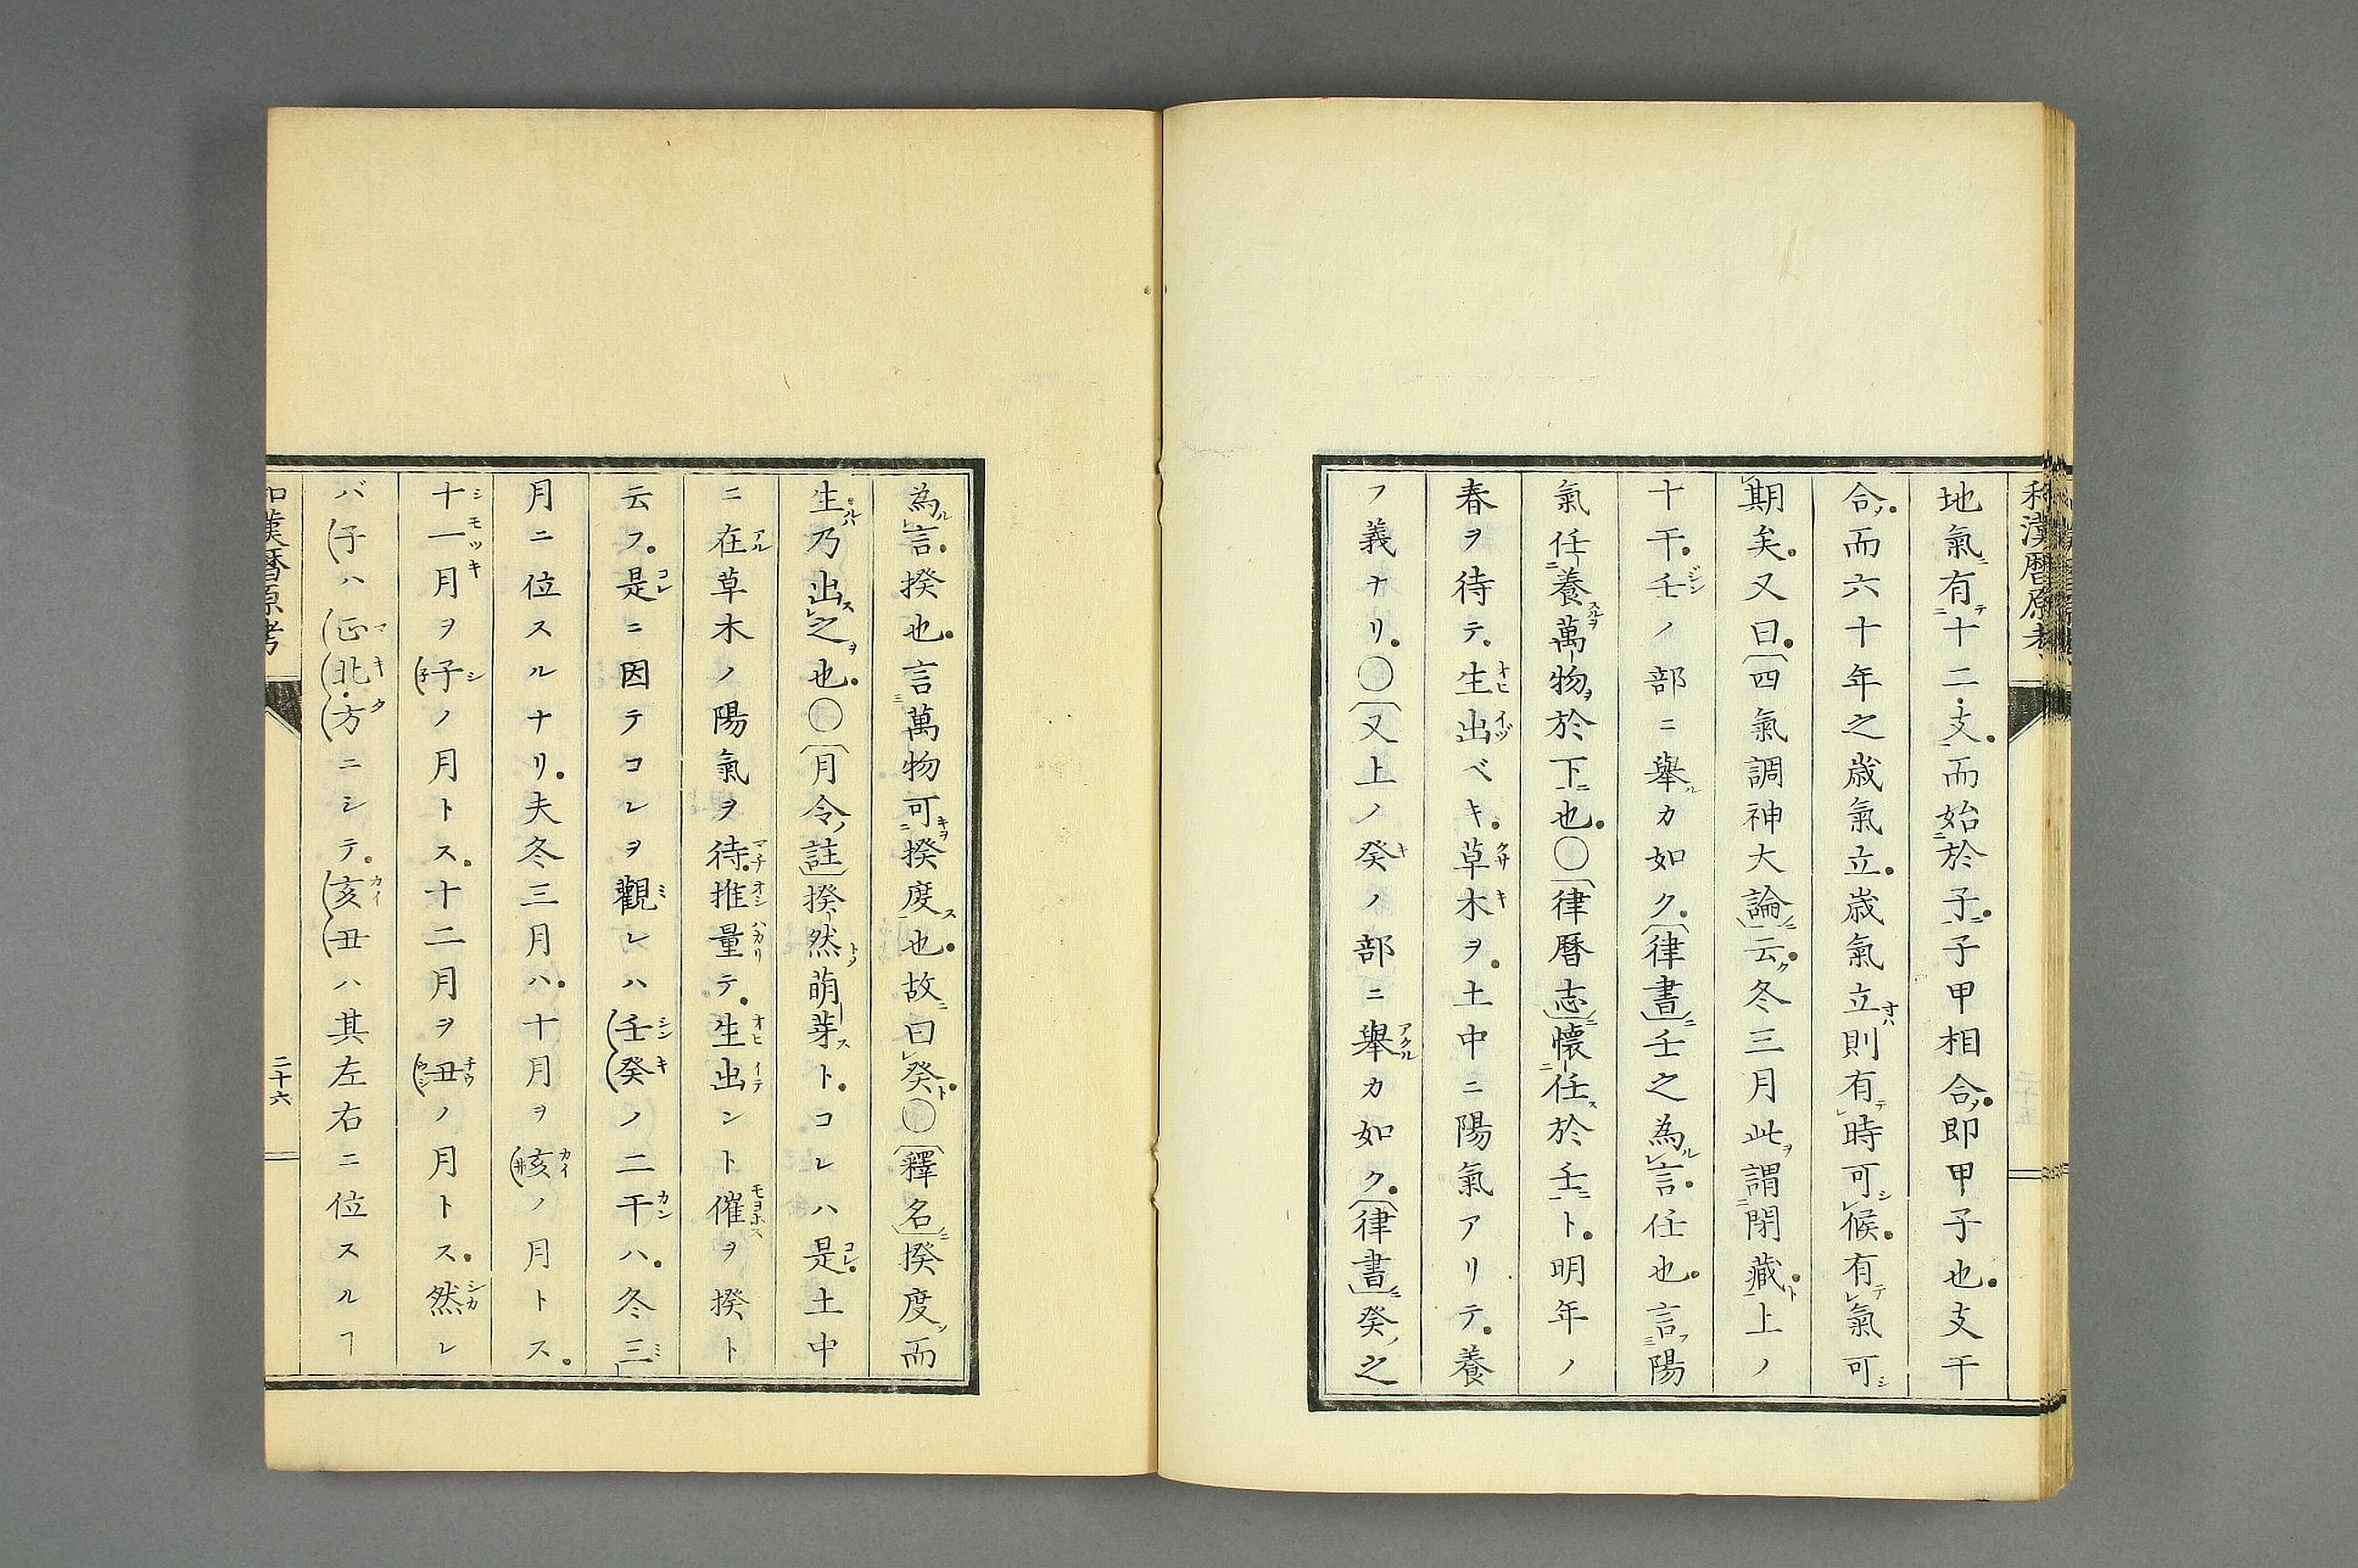 和漢暦原考
地氣有十二支而始於子子甲相合即甲子也支干
合而六十年之歳氣立歳氣立則有時可候有氣可
期矣又曰四氣調神大論云冬三月此謂閉藏上ノ
十干壬ノ部ニ擧カ如ク律書壬之為言任也言陽
氣任養萬物於下也〇律暦志懷任於壬ト明年ノ
春ヲ待テ生出ベキ草木ヲ土中ニ陽氣アリテ養
フ義ナリ〇又上ノ癸ノ部ニ擧カ如ク律書癸之
為言揆也言萬物可揆度也故曰癸〇釋名揆度而
生乃出之也〇月令註揆然萌芽トコレハ是土中
ニ在草木ノ陽氣ヲ待推量テ生出ント催ヲ揆ト
云フ是ニ因テコレヲ觀レハ壬癸ノ二干ハ冬三
月ニ位スルナリ夫冬三月ハ十月ヲ亥ノ月トス
十一月ヲ子ノ月トス十二月ヲ丑ノ月トス然レ
バ子ハ正北方ニシテ亥丑ハ其左右ニ位スルヿ
和漢暦原考
二十六